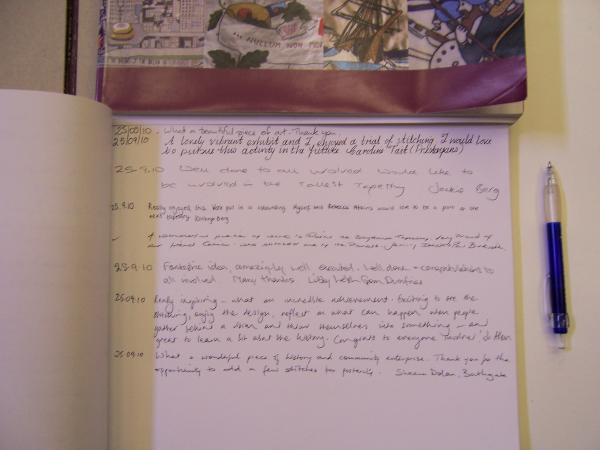 ... NULLUM NON
25/09/10 - What a beautiful piece of art. Thank you.
25/09/10 A lovely vibrant exhibit and I enjoyed a trial of stitching. I would love
to pursue this activity in the future Caroline Tait (Prestonpans)
25-9.10 Well done to all involved would like to
be involved in the Tallest Tapestry Jackie Berg
25.9.10 Really enjoyed this. Work put in is astounding. and Rebecca would like to be a part of the
next tapestry Berg
A wonderful piece of work to the Bayeux Tapestry. Very proud of
our friend who stitched one of the Panels. Jenny
25-9.10 Fantastic idea, amazingly well executed. Well done & congratulations to
all involved Many thanks Libby from Dumfries
25.09.10 Really inspiring - what an incredible achievement. Exciting to see the
stitching, enjoy the design, reflect on what can happen when people
gather behind a vision and throw themselves into something - and
great to learn a bit about the history. Congrats to everyone
25.09.10 What a wonderful piece of history and community enterprise. Thank you for the
opportunity to add a few stitches for posterity. Sheena Dolan, Bathgate